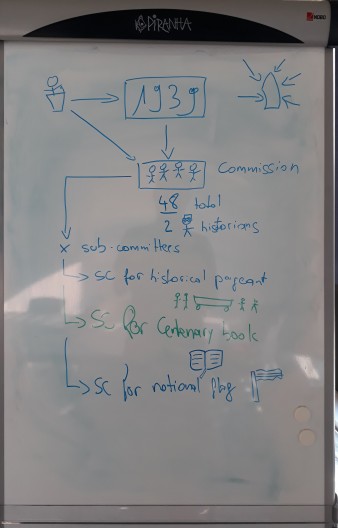 PIRANHA
NOBO
1939
Commission
48 total
2 historians
x sub-committers
SC for historical pageant
SC for Centenary book
SC for national flag